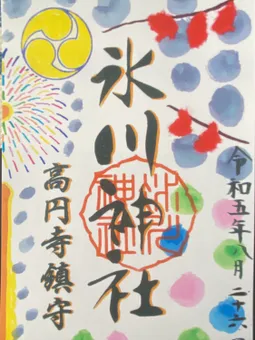 令和五年八月二十六日
氷川神社
高円寺鎮守